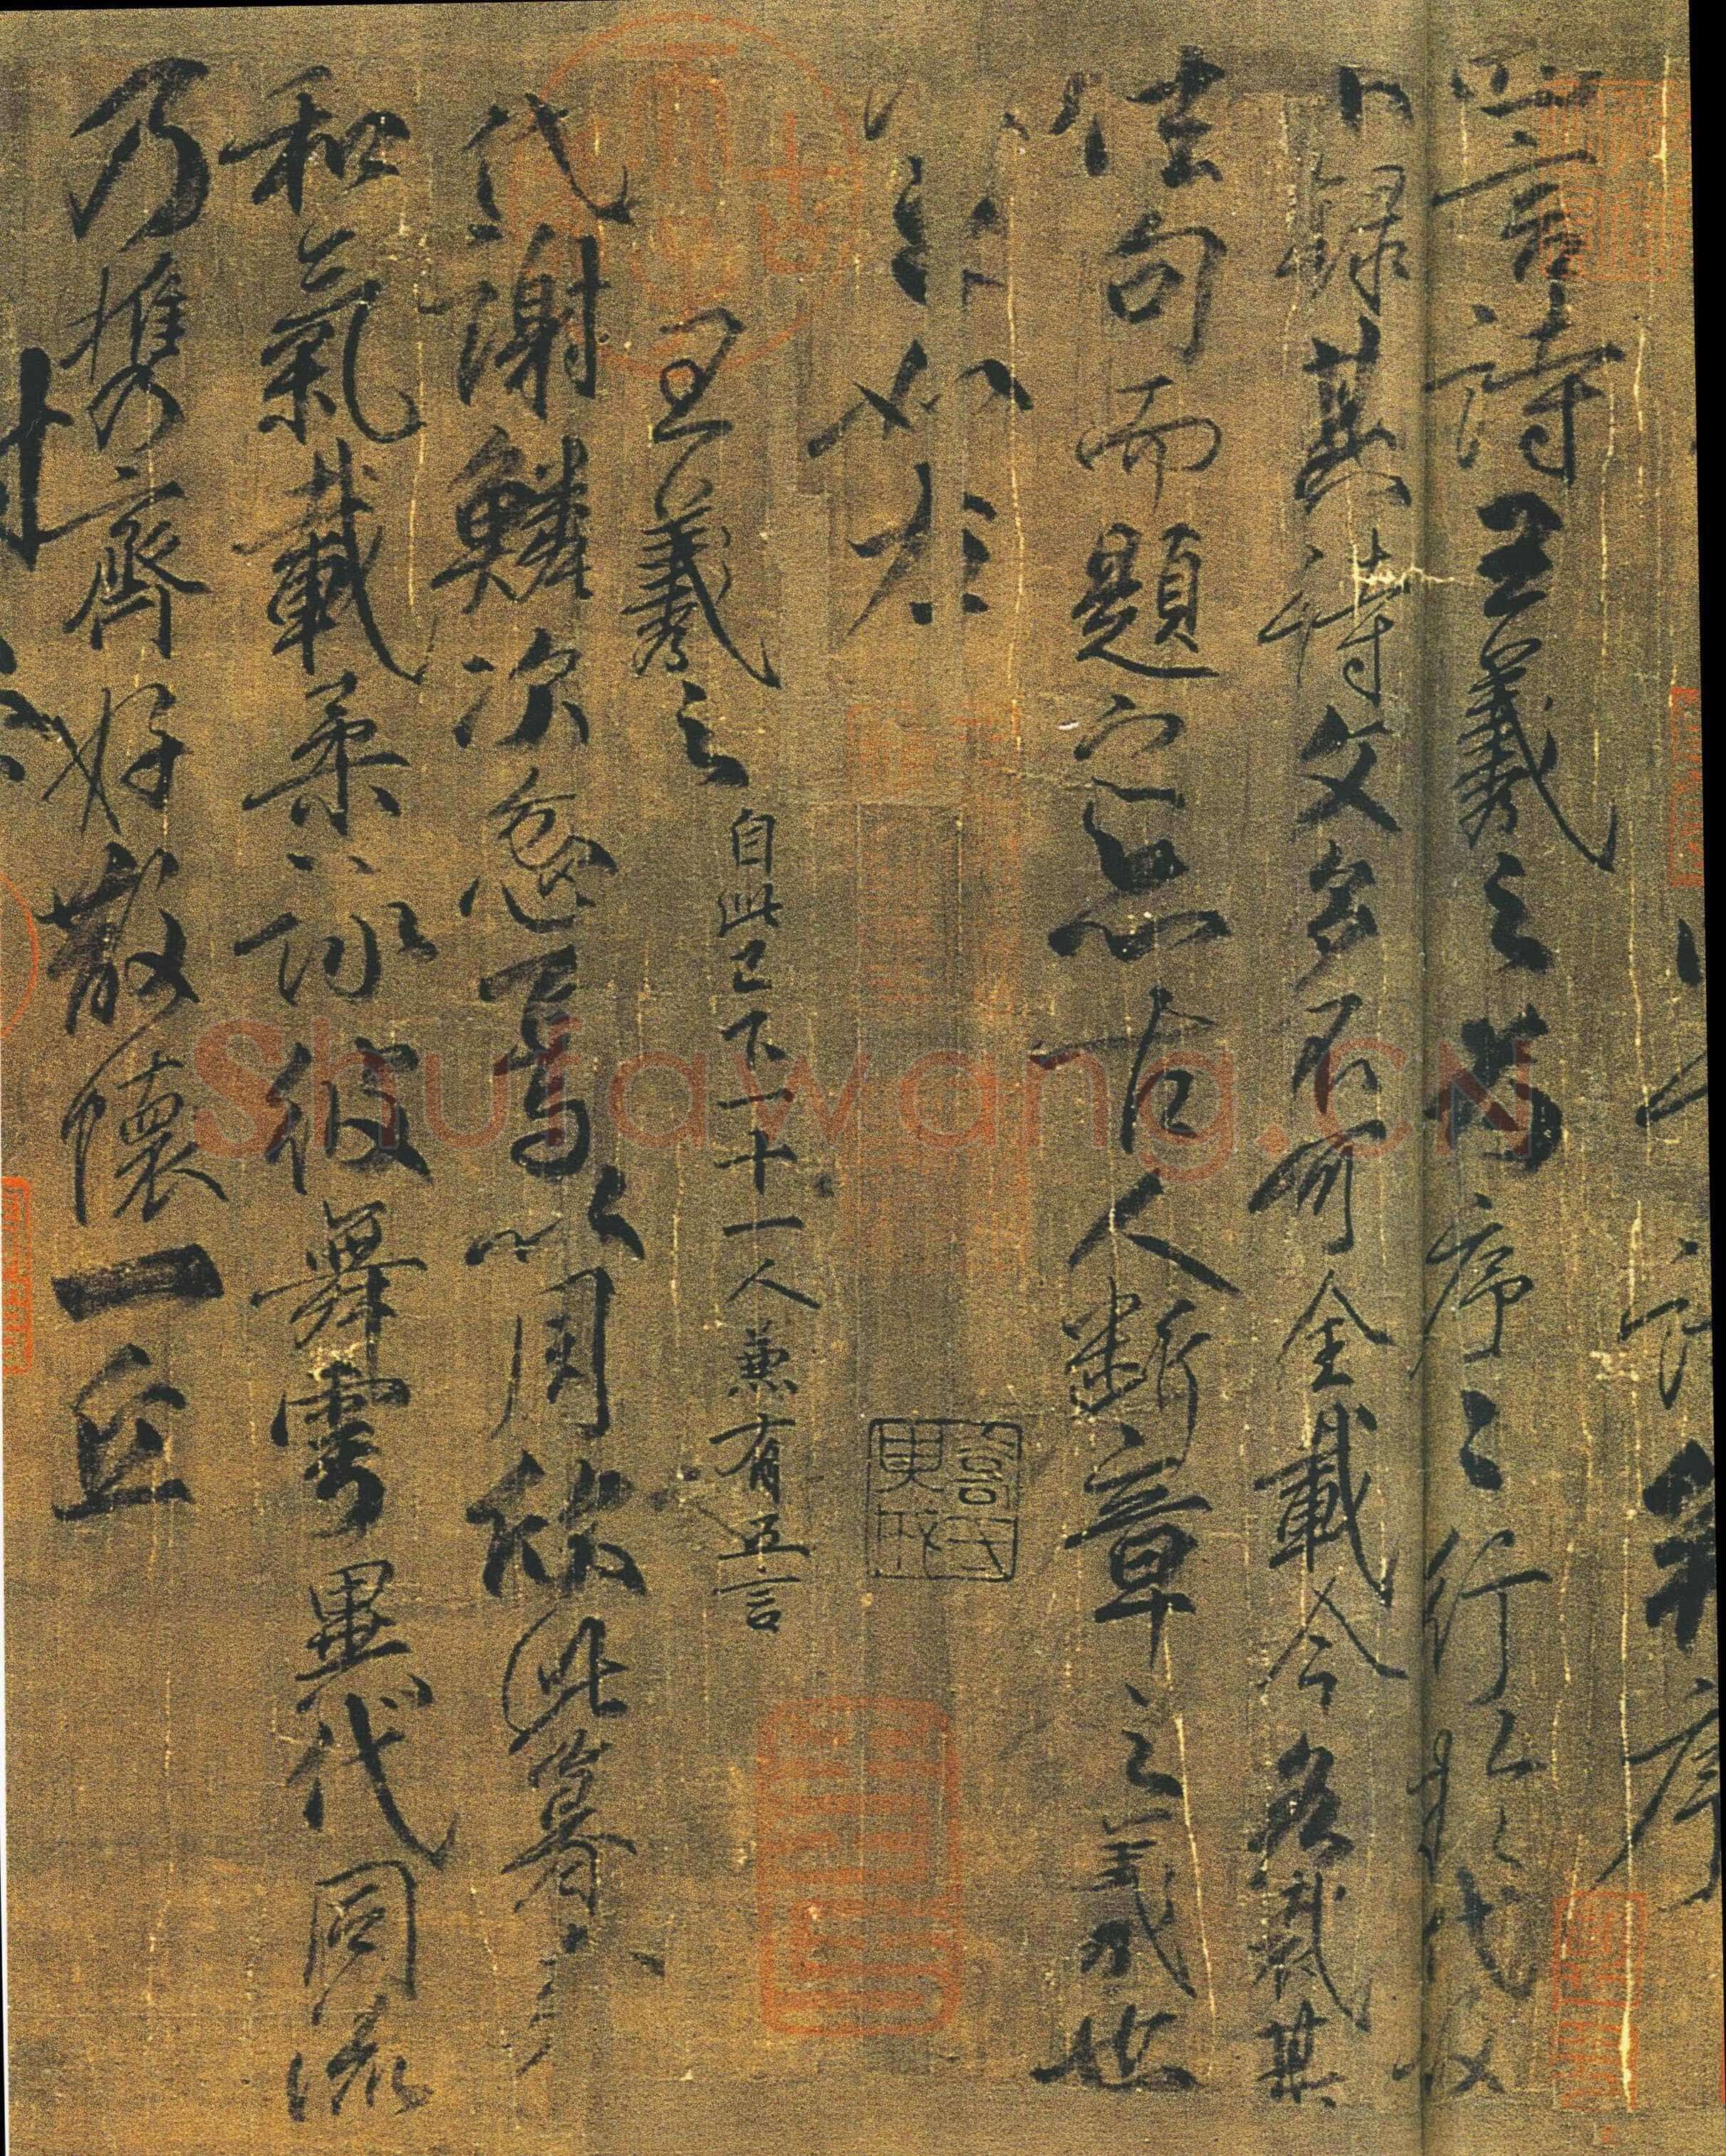 四言詩王羲之為序序行於代故
不錄其詩文多不可全載今各裁其
佳句而題之亦古人斷章之義也
如左
王羲之 自此已下一十一人兼有五言
代謝鱗次忽焉以周欣此暮春
和氣載柔詠彼舞雩異代同流
乃攜齊好散懷一丘
Shufawang.CN